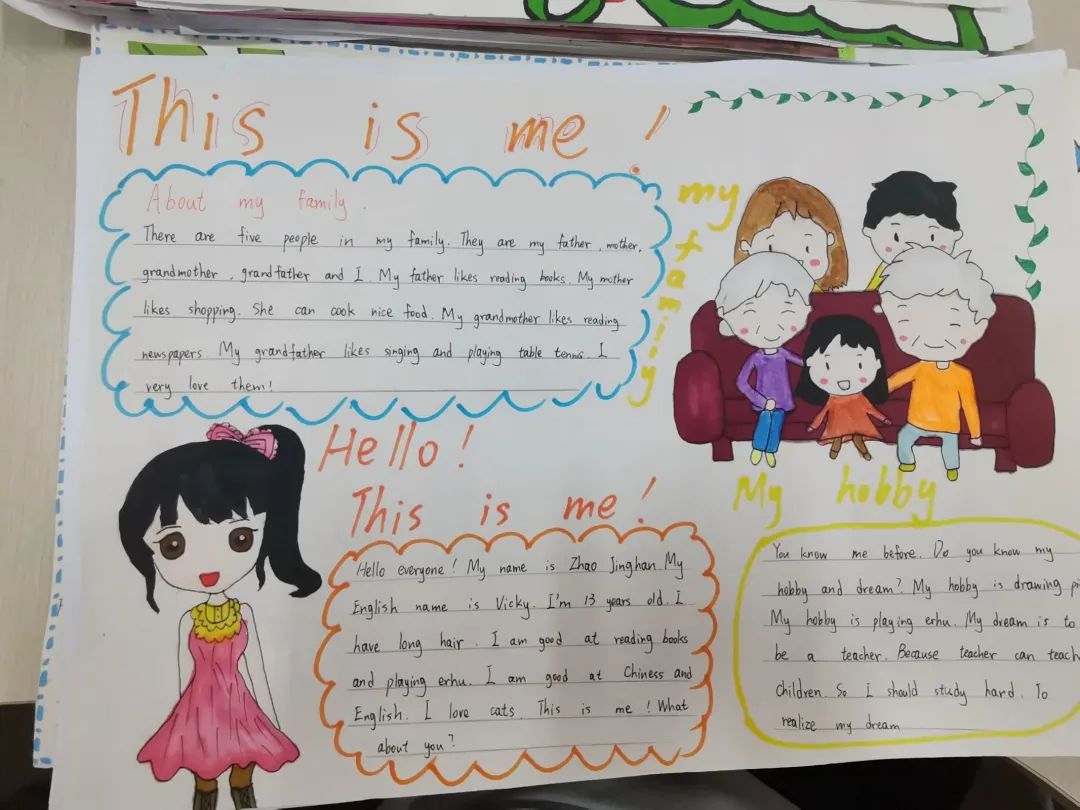 This is me!
About my family.
There are five people in my family. They are my father, mother,
grandmother, grandfather and I. My father likes reading books. My mother
likes shopping. She can cook nice food. My grandmother likes reading
newspapers. My grandfather likes singing and playing table tennis. I
very love them!
my family
Hello!
This is me!
Hello everyone! My name is Zhao Jinghan. My
English name is Vicky. I'm 13 years old. I
have long hair. I am good at reading books
and playing erhu. I am good at Chiness and
English. I love cats. This is me! What
about you?
My hobby
You know me before. Do you know my
hobby and dream? My hobby is drawing
My hobby is playing erhu. My dream is to
be a teacher. Because teacher can teach
children. So I should study hard. To
realize my dream